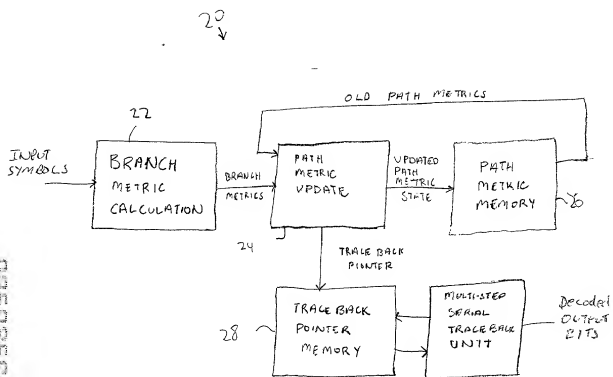 20
OLD PATH METRICS
22
INPUT
SYMBOLS
BRANCH
METRIC
CALCULATION
BRANCH
METRICS
PATH
METRIC
UPDATE
UPDATED
PATH
METRIC
STATE
PATH
METRIC
MEMORY
24
TRACE BACK
POINTER
28
TRACE BACK
POINTER
MEMORY
MULTI-STEP
SERIAL
TRACEBACK
UNIT
Decoded
OUTPUT
BITS